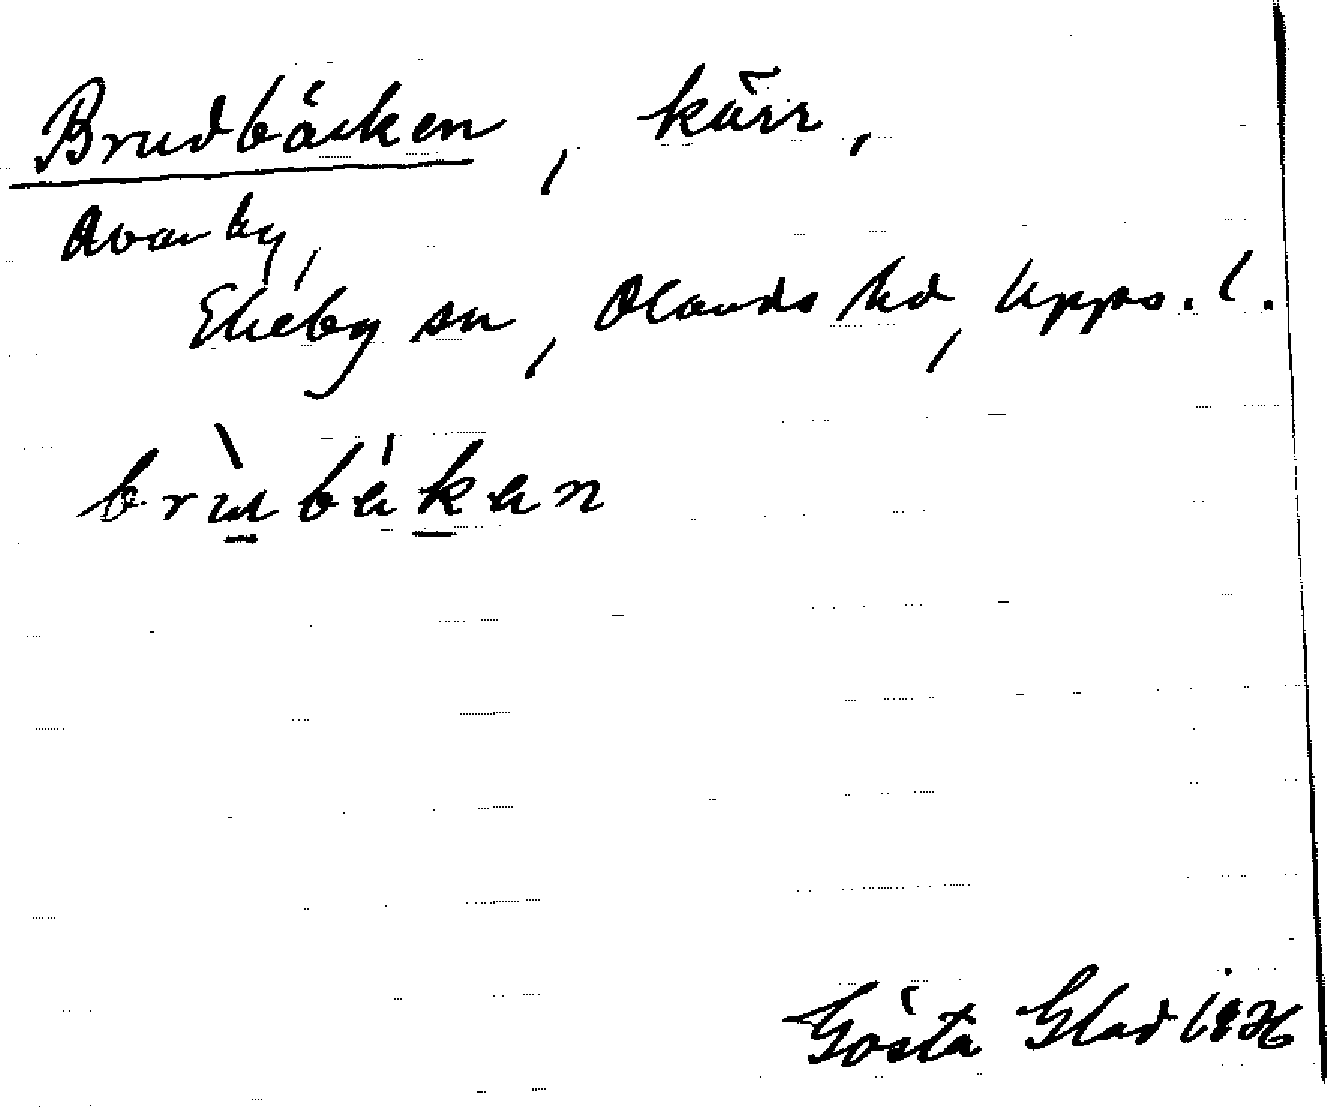 Brudbäcken, kärr,
by,
Ekeby sn, Olands hd, Upps. l.
brùbäkan
Gösta Glad 1936